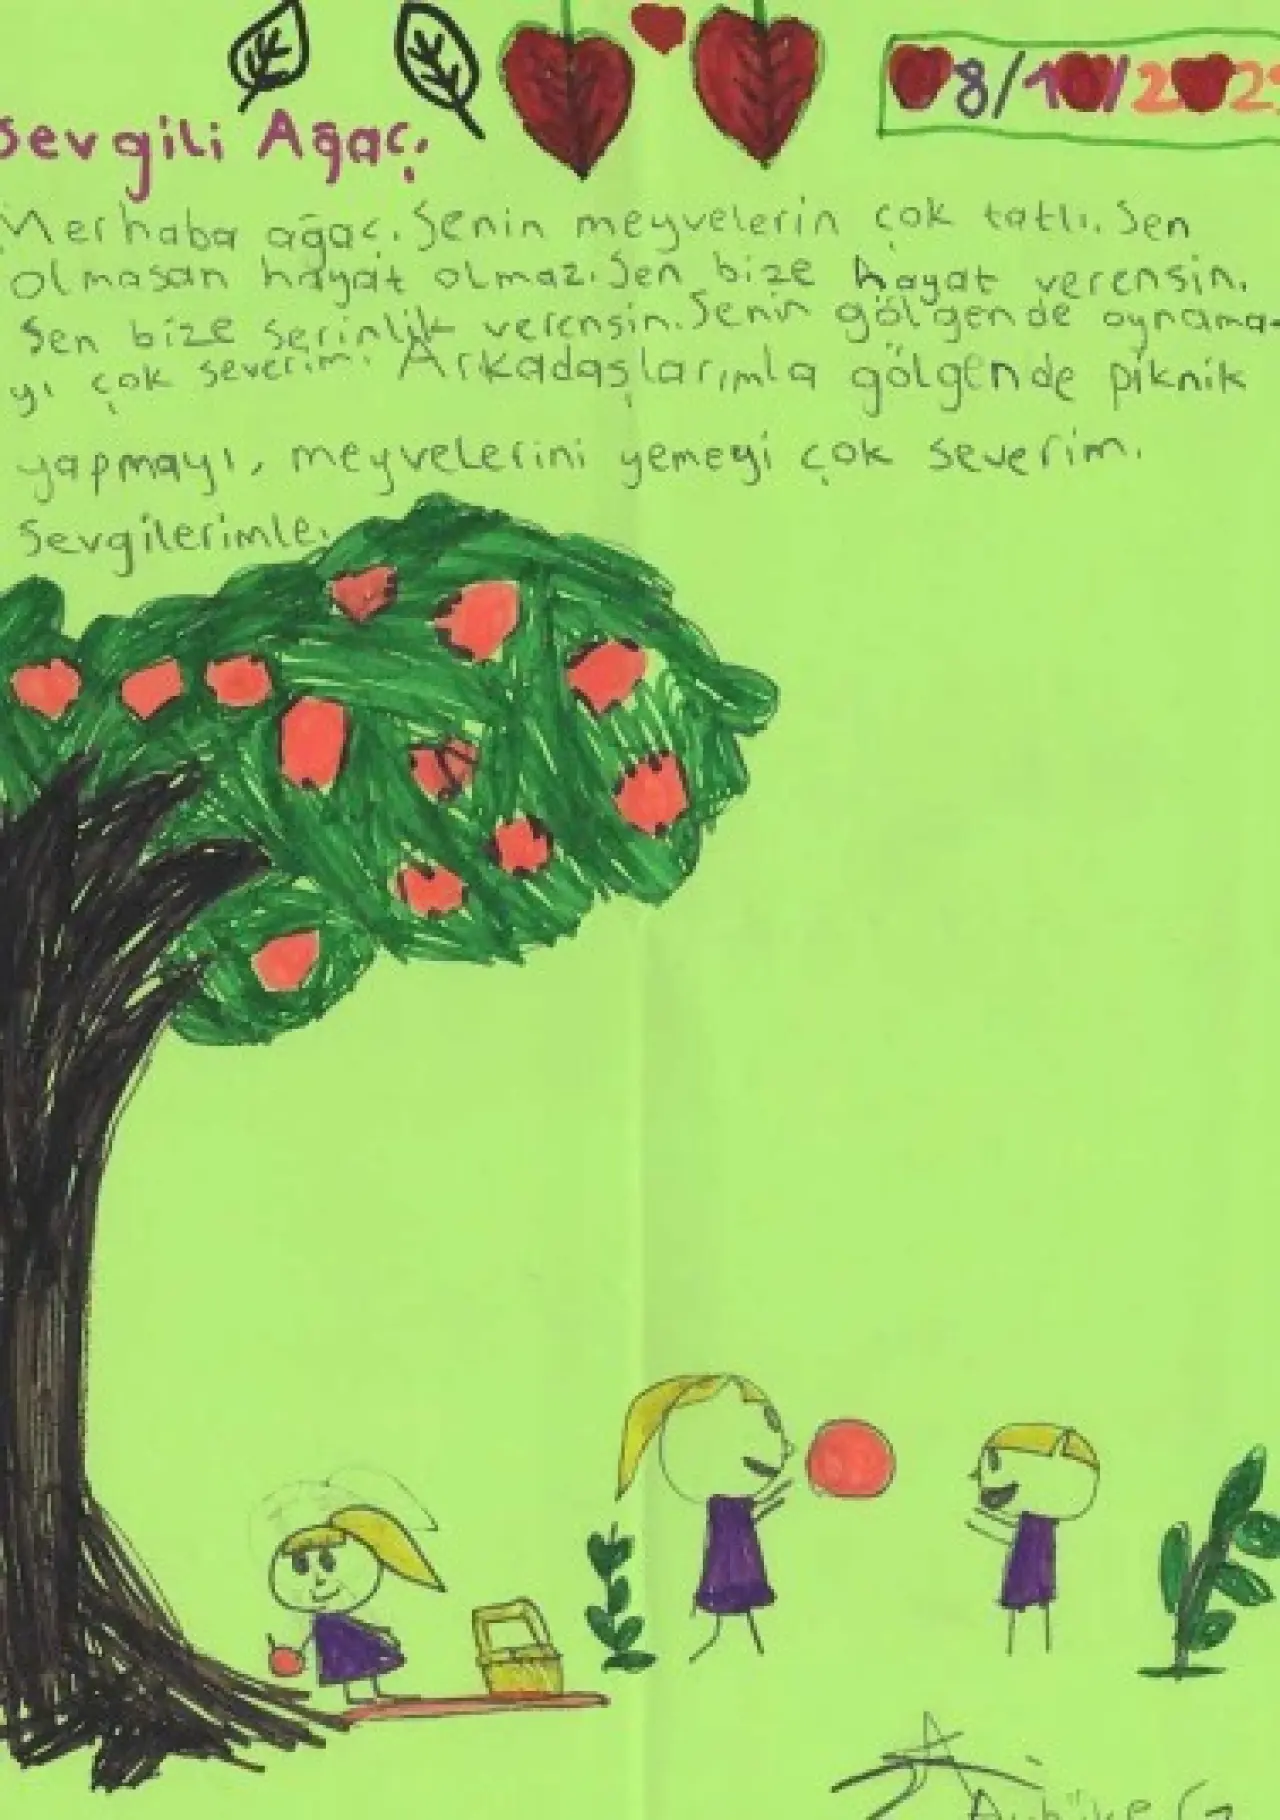 8/10/202
Sevgili Ağaç,
Merhaba ağaç. Senin meyvelerin çok tatlı. Sen
olmasan hayat olmaz. Sen bize hayat verensin.
Sen bize serinlik verensin. Senin gölgende oynama-
yı çok severim. Arkadaşlarımla gölgende piknik
yapmayı, meyvelerini yemeyi çok severim.
Sevgilerimle.